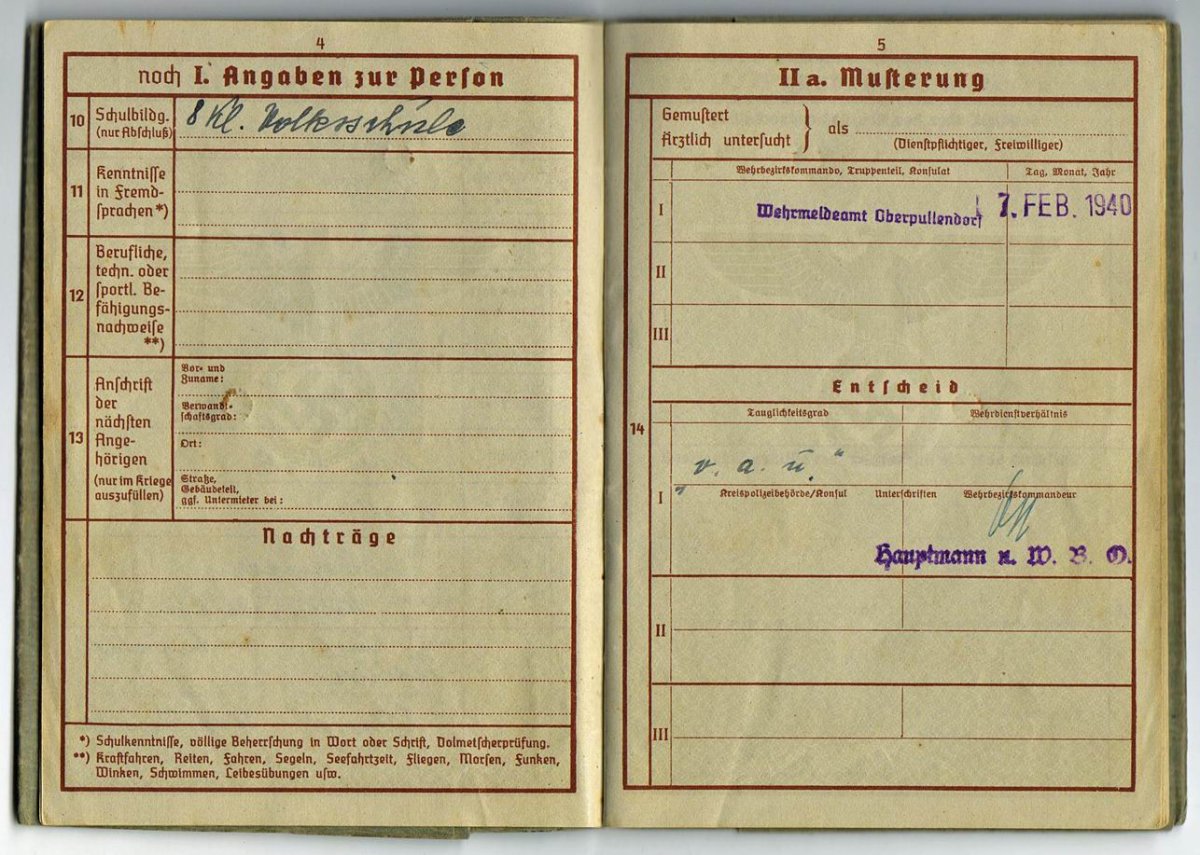 4
noch I. Angaben zur Person
10
Schulbildg.
(nur Abschluß)
8 Kl. Volksschule
11
Kenntnisse
in Fremd-
sprachen*)
12
Berufliche,
techn. oder
sportl. Be-
fähigungs-
nachweise
**)
13
Anschrift
der
nächsten
Ange-
hörigen
(nur im Kriege
auszufüllen)
Vor- und
Zuname:
Verwandt-
schaftsgrad:
Ort:
Straße,
Gebäudeteil,
ggf. Untermieter bei:
Nachträge
*) Schulkenntnisse, völlige Beherrschung in Wort oder Schrift, Dolmetscherprüfung.
**) Kraftfahren, Reiten, Fahren, Segeln, Seefahrtzeit, Fliegen, Morsen, Funken,
Winken, Schwimmen, Leibesübungen usw.
5
II a. Musterung
Gemustert
Ärztlich untersucht } als
(Dienstpflichtiger, Freiwilliger)
Wehrbezirkskommando, Truppenteil, Konsulat Tag, Monat, Jahr
I Wehrmeldeamt Oberpullendorf 7. FEB. 1940
II
III
Entscheid
14
Tauglichkeitsgrad Wehrdienstverhältnis
„v. a. u.“
I Kreispolizeibehörde/Konsul Unterschriften Wehrbezirkskommandeur
Hauptmann u. W. B. O.
II
III